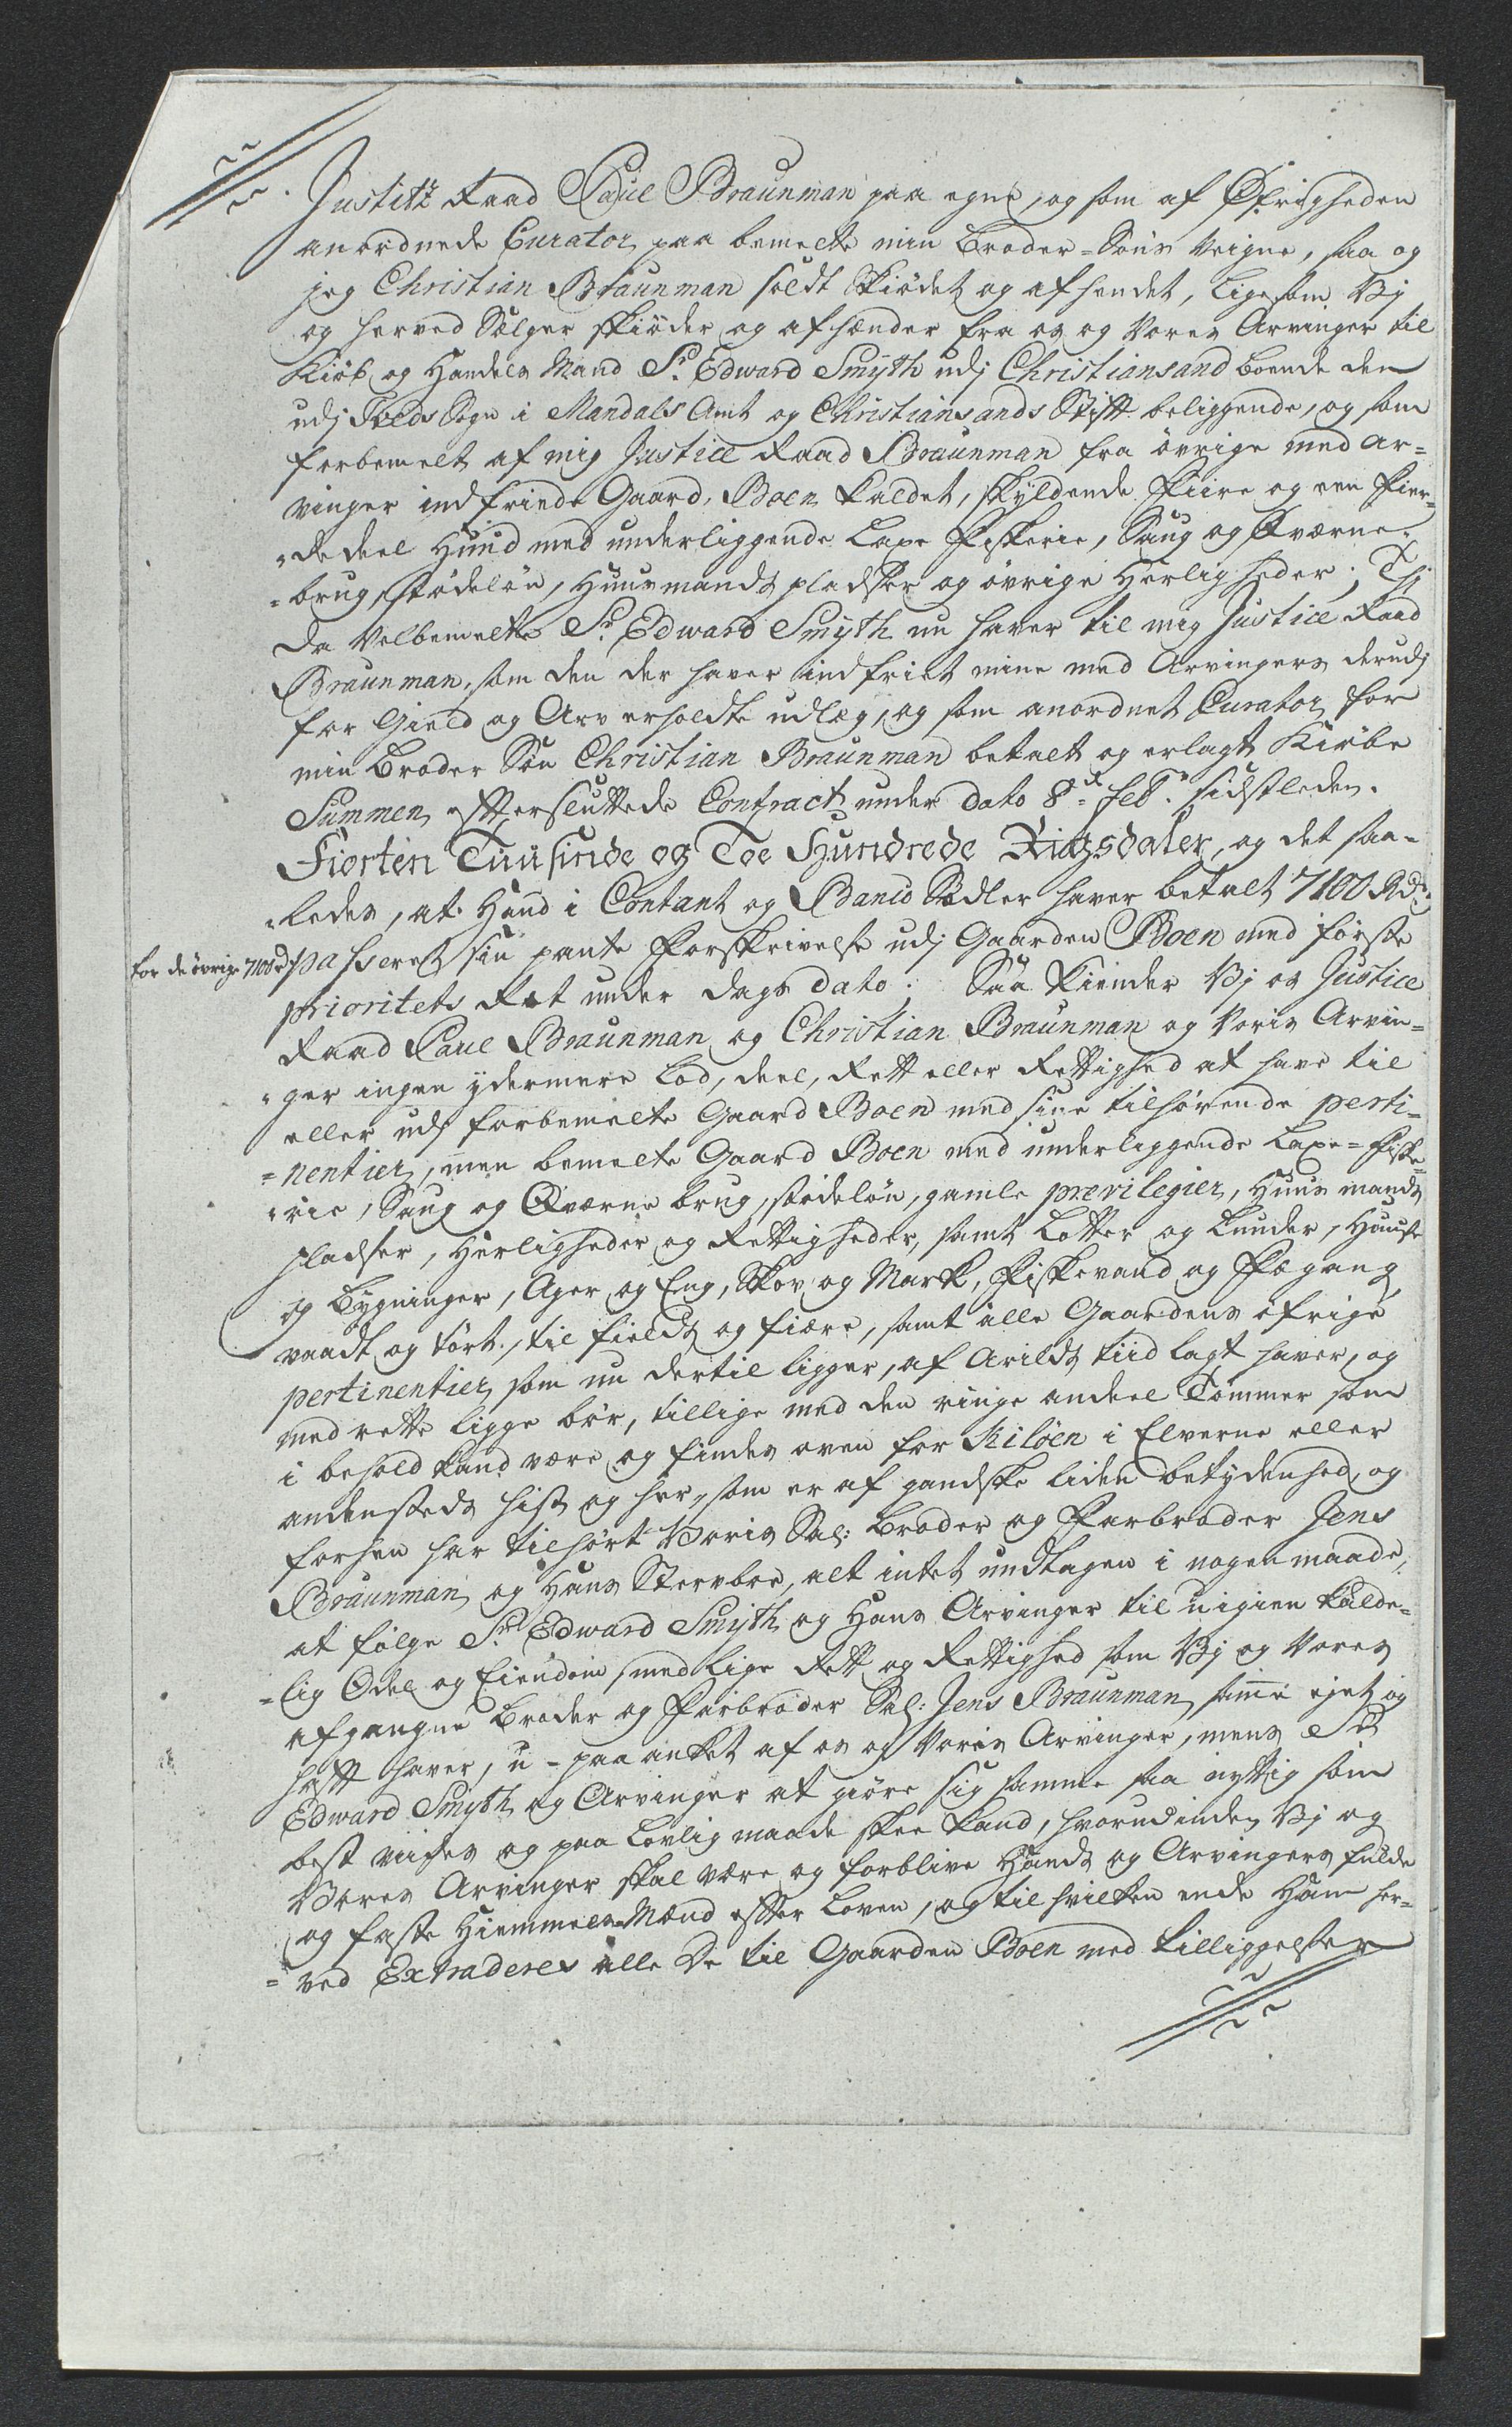 Justitz Raad Paul Braunman paa egne, og som af Øfrigheden
anordnede Curator paa bemelte min Broder-Søns Veigne, saa og
jeg Christian Braunman soldt Skiödet og afhendet, Ligesom Vj
og herved Sælger skiöder og afhænder fra os og Vores Arvinger til
Kiöb og Handels Mand Sr. Edward Smÿth udj Christiansand boende den
udj Tveds Sogn i Mandals Amt og Christiansands Stift beliggende, og som
forbemelt af mig Justice Raad Braunman fra övrige med Ar=
vinger indfriede Gaard, Boen kaldet, skyldende Fiire og een Fier=
=dedeel Huud med underliggende Laxe Fiskerie, Saug og Qværne-
=brug, stödelön, Huusmands pladser og övrige Herligheder; Thj
da Velbemelte Sr. Edward Smÿth nu haver til mig Justice Raad
Braunman, som den der haver indfriet mine med Arvingers derudj
for Gield og Arv erholdte udlæg, og som anordnet Curator for
min Broder Sön Christian Braunman betalt og erlagt Kiöbe
Summen efter sluttede Contract under dato 8de febr. sidstleden.
Fiorten Tuusinde og Toe Hundrede Rigsdaler, og det saa-
=ledes, at Hand i Contant og Banco Sedler haver betalt 7100 Rdr;
for de övrige 7100 rd passeret sin pante Forskrivelse udj Gaarden Boen med förste
prioritets Ret under dags dato; Saa Kiender Vj os Justice
Raad Paul Braunman og Christian Braunman og Voris Arvin=
=ger ingen ydermere Lod, deel, Rett eller Rettighed at have til
eller udj forbemelte Gaard Boen med sine tilhörende perti=
=nentier, men bemelte Gaard Boen med underliggende Laxe=Fiske=
=rie, Saug og Qværne brug, stödelön, gamle previlegier, Huus mands
pladser, Herligheder og Rettigheder, samt Lotter og Lunder, Huuse
og Bygninger, Ager og Eng, Skov og Mark, Fiskevand og Fægang
vaadt og tört, til fields og fiære, samt alle Gaardens öfrige
pertinentier, som nu dertil ligger, af Arilds tiid lagt haver, og
med rette ligge bör, tillige med den ringe andeel Tömmer som
i behold kand være og findes oven for Kilöen i Elverne eller
andensteds hist og her, som er af gandske liden betydenhed, og
forhen har tilhört Voris Sal: Broder og Farbroder Jens
Braunman og Hans Stervboe, alt intet undtagen i nogen maade,
at fölge Sr. Edward Smÿth og Hans Arvinger til uigien kalde=
=lig Odel og Eiendom, med lige Rett og Rettighed som Vj og Vores
afgangne Broder og Farbroder Sal: Jens Braunman samme ejet og
haft haver, u-paaanket af os og Voris Arvinger, mens Sr.
Edward Smyth og Arvinger at giöre sig samme saa nyttig som
best viides og paa Lovlig maade skee kand, hvorudinden Vj og
Vores Arvinger skal være og forblive Hands og Arvingers fulde
og faste Hiemmels-Mænd efter Loven, og til hvilken ende Ham her=
=ved Extraderes alle De til Gaarden Boen med tilliggelser